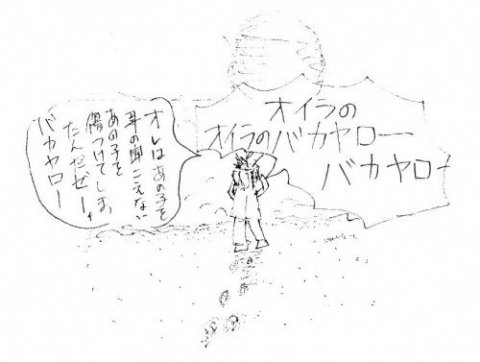 オイラの
オイラのバカヤロー
バカヤロー
オレはあの子を
耳の聞こえない
あの子を
傷つけてしまっ
たんだぜー
バカヤロー